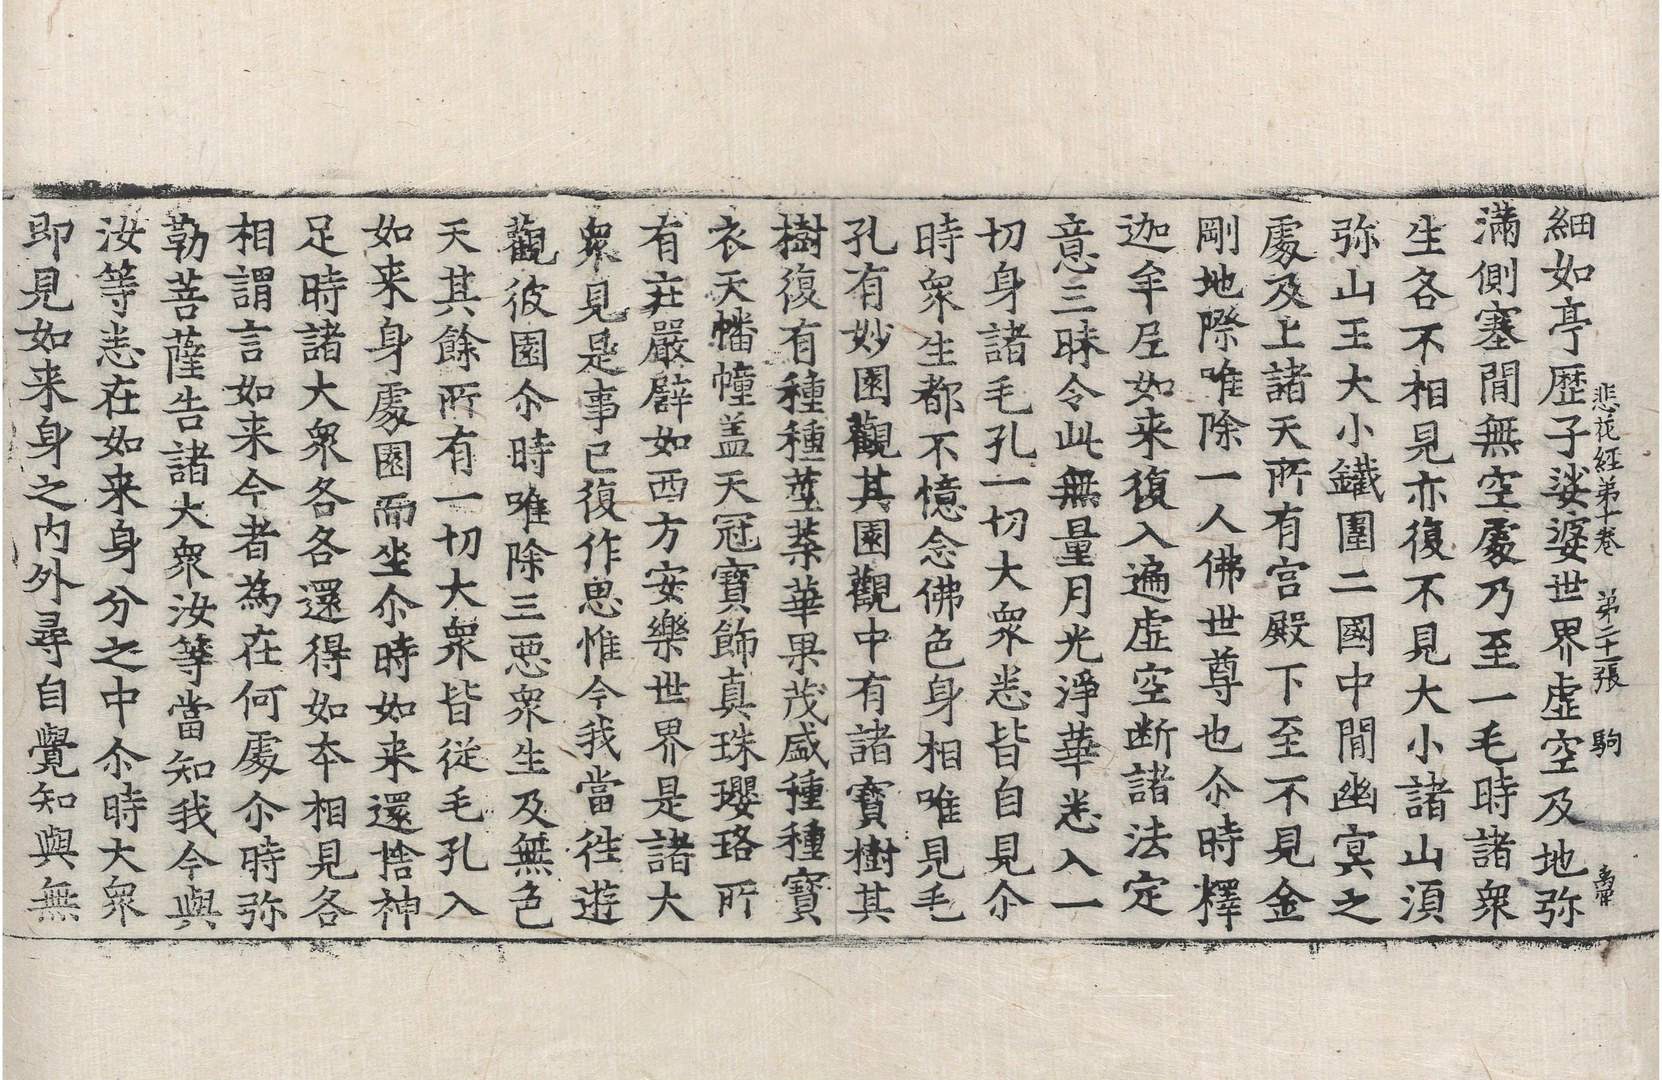 悲花経苐十卷　苐二十一張　駒
細如亭歴子娑婆世界虛空及地弥
滿側塞閒無空處乃至一毛時諸衆
生各不相見亦復不見大小諸山須
弥山王大小鐵圍二國中閒幽㝠之
處及上諸天所有宫殿下至不見金
剛地際唯除一人佛世尊也尒時釋
迦牟尼如来復入遍虛空断諸法定
意三昧令此無量月光淨華悉入一
切身諸毛孔一切大衆悉皆自見尒
時衆生都不憶念佛色身相唯見毛
孔有妙園觀其園觀中有諸寶樹其
樹復有種種莖葉華果茂盛種種寶
衣天幡幢盖天冠寶飾真珠瓔珞所
有莊嚴譬如西方安樂世界是諸大
衆見是事已復作思惟今我當徃遊
觀彼園尒時唯除三惡衆生及無色
天其餘所有一切大衆皆從毛孔入
如来身處園而坐尒時如来還捨神
足時諸大衆各各還得如本相見各
相謂言如来今者為在何處尒時弥
勒菩薩告諸大衆汝等當知我今與
汝等悉在如来身分之中尒時大衆
即見如来身之内外尋自覺知與無